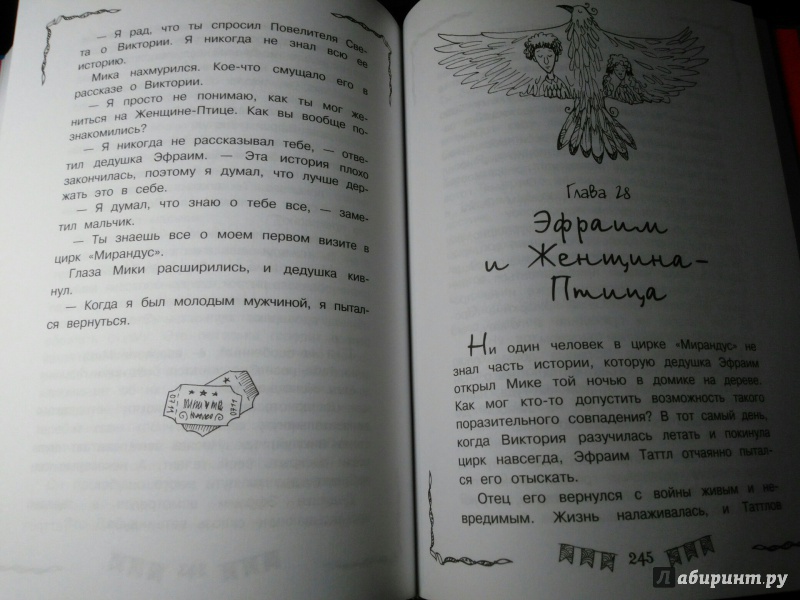 — Я рад, что ты спросил Повелителя Све-
та о Виктории. Я никогда не знал всю ее
историю.
Мика нахмурился. Кое-что смущало его в
рассказе о Виктории.
— Я просто не понимаю, как ты мог же-
ниться на Женщине-Птице. Как вы вообще по-
знакомились?
— Я никогда не рассказывал тебе, — отве-
тил дедушка Эфраим. — Эта история плохо
закончилась, поэтому я думал, что лучше дер-
жать это в себе.
— Я думал, что знаю о тебе все, — заме-
тил мальчик.
— Ты знаешь все о моем первом визите в
цирк «Мирандус».
Глаза Мики расширились, и дедушка кив-
нул.
— Когда я был молодым мужчиной, я пытал-
ся вернуться.
Глава 28
Эфраим
и Женщина-
Птица
Ни один человек в цирке «Мирандус» не
знал часть истории, которую дедушка Эфраим
открыл Мике той ночью в домике на дереве.
Как мог кто-то допустить возможность такого
поразительного совпадения? В тот самый день,
когда Виктория разучилась летать и покинула
цирк навсегда, Эфраим Таттл отчаянно пытал-
ся его отыскать.
Отец его вернулся с войны живым и не-
вредимым. Жизнь налаживалась, и Таттлов
245
Лабиринт.ру